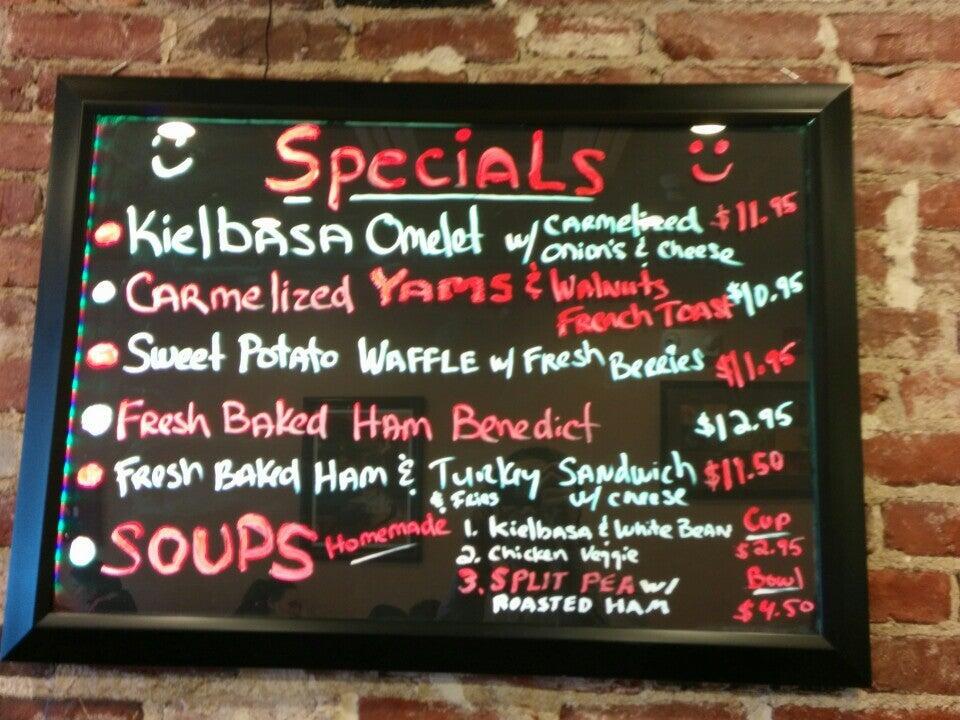 Specials
Kielbasa Omelet w/ Carmelized Onion's & Cheese $11.95
Carmelized Yams & Walnuts French Toast $10.95
Sweet Potato Waffle w/ Fresh Berries $11.95
Fresh Baked Ham Benedict $12.95
Fresh Baked Ham & Turkey Sandwich $11.50
& Fries w/ cheese
Soups Homemade 1. Kielbasa & White Bean Cup
2. Chicken Veggie $2.95
3. Split Pea w/ Bowl
Roasted Ham $4.50